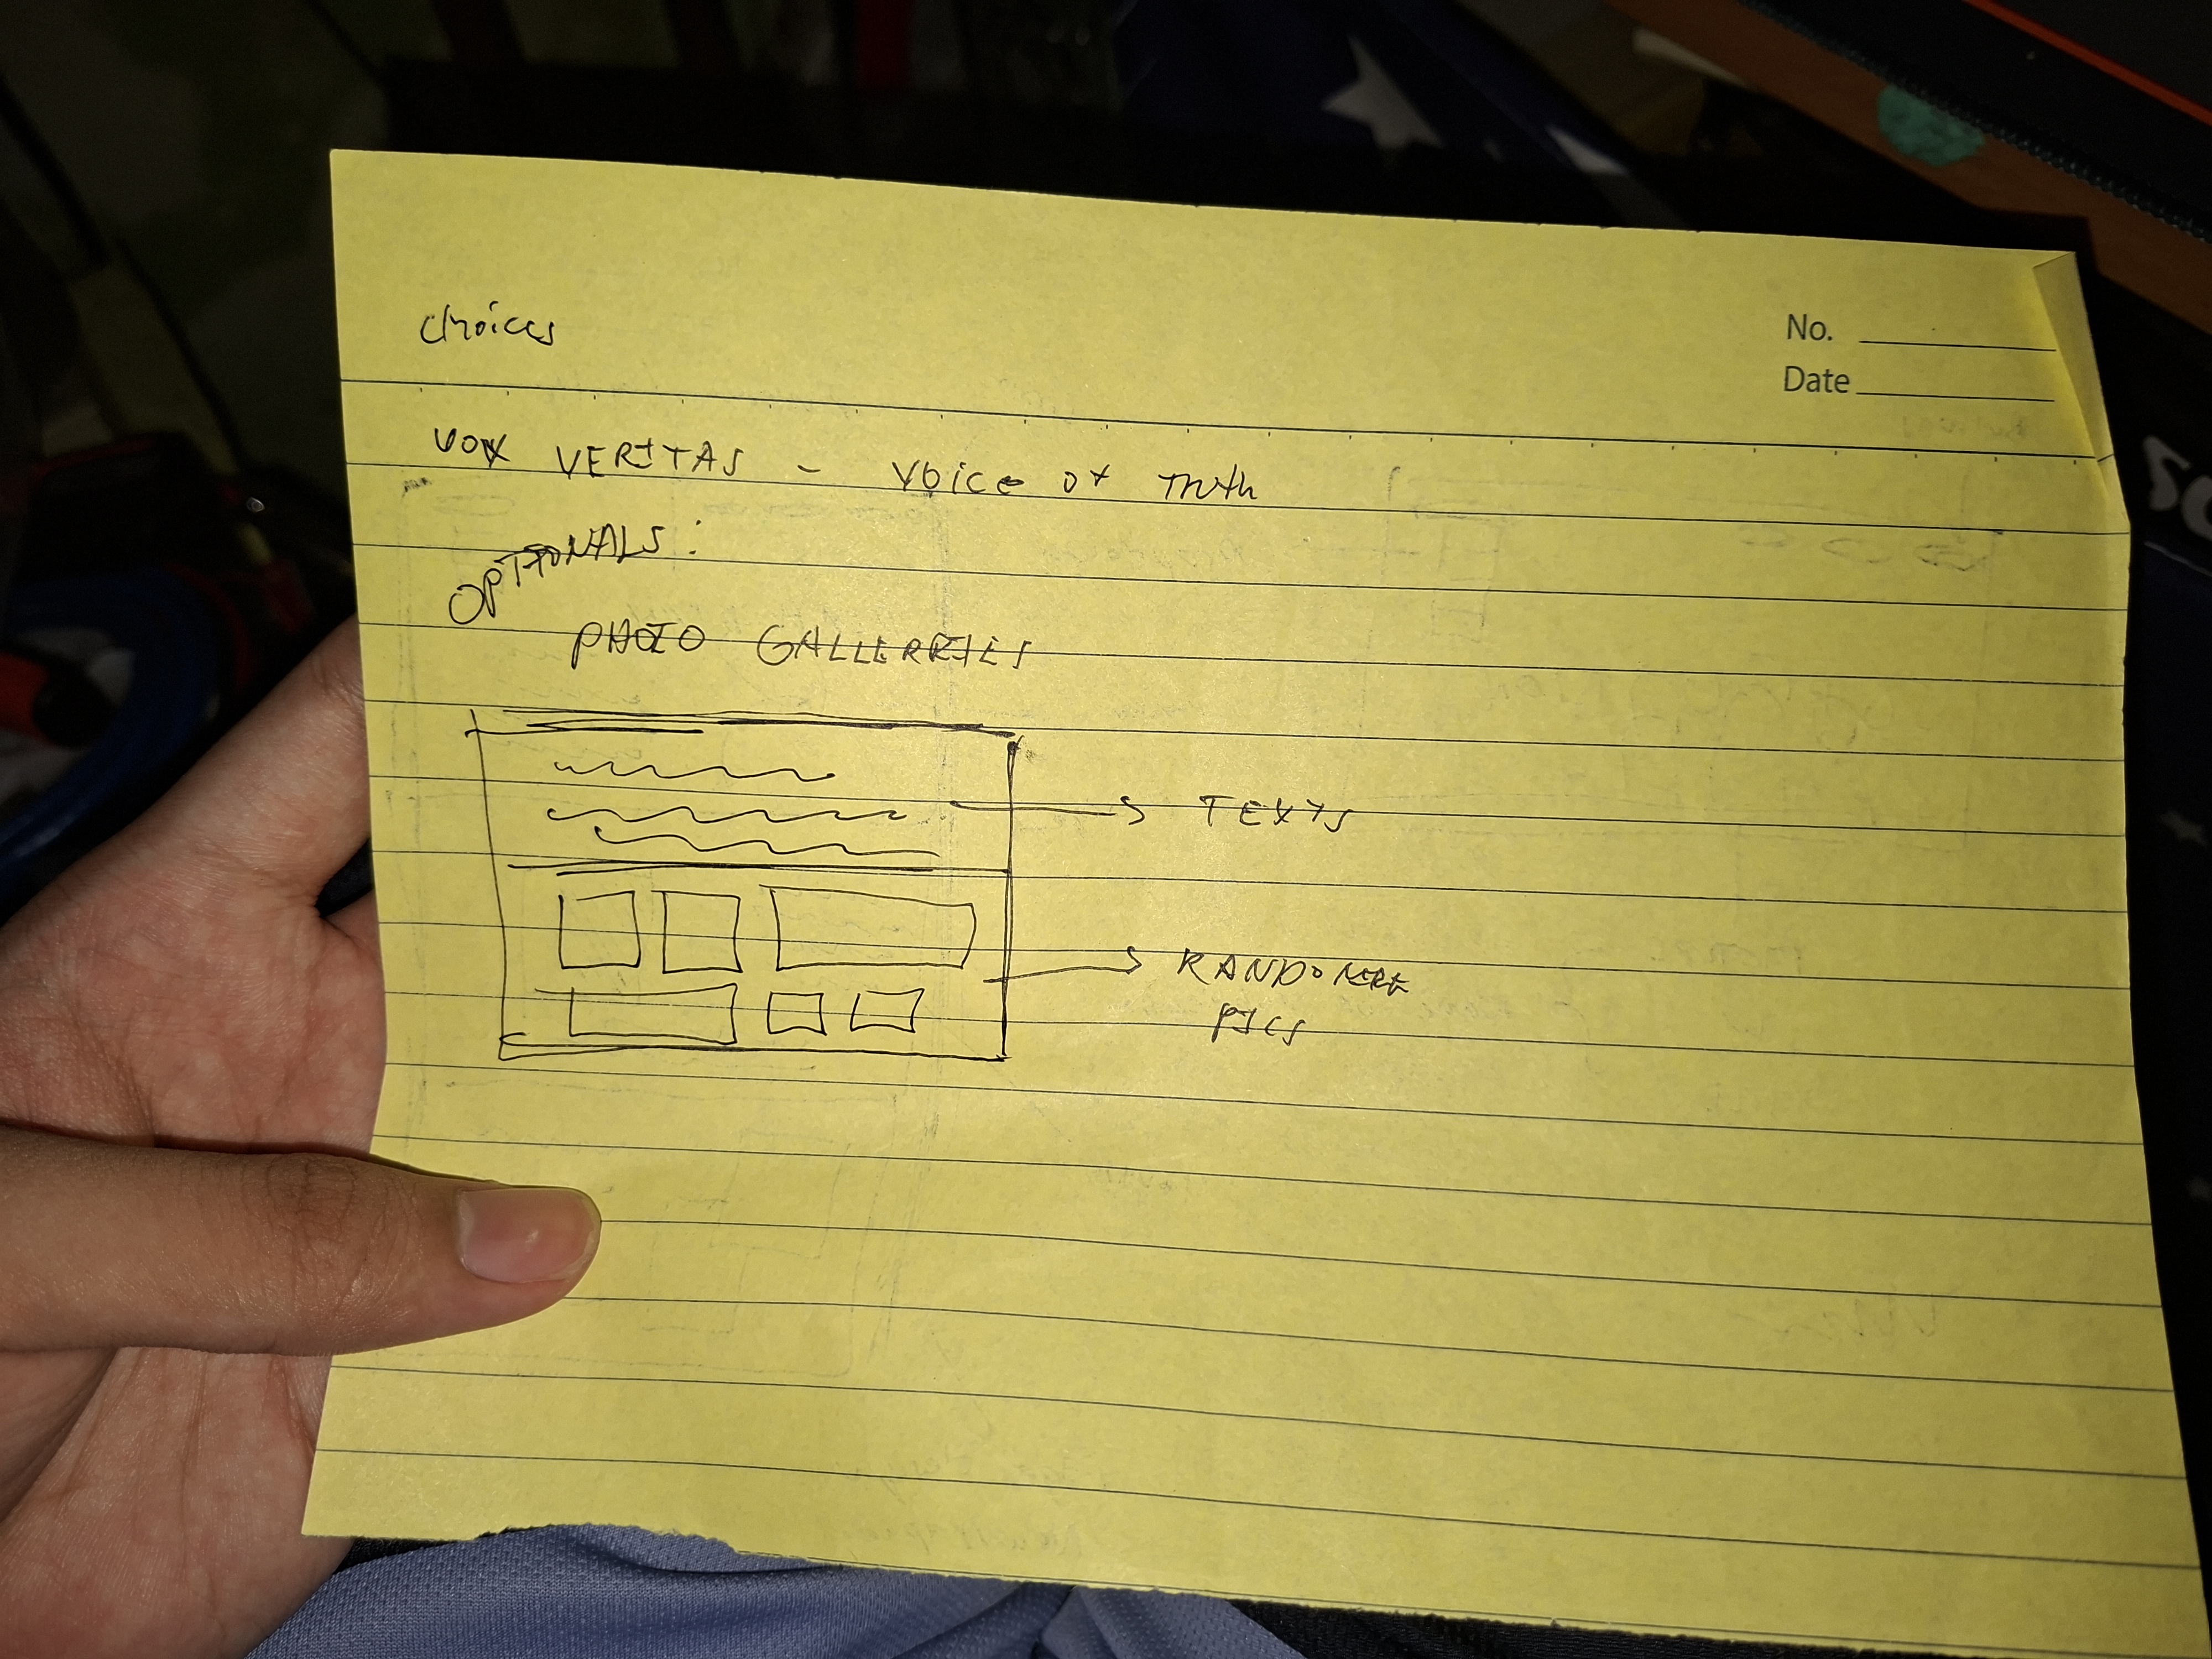 choices
No.
Date
VOX VERITAS - Voice of Truth
OPTIONALS:
PHOTO GALLERRIES
TEXTS
PICS